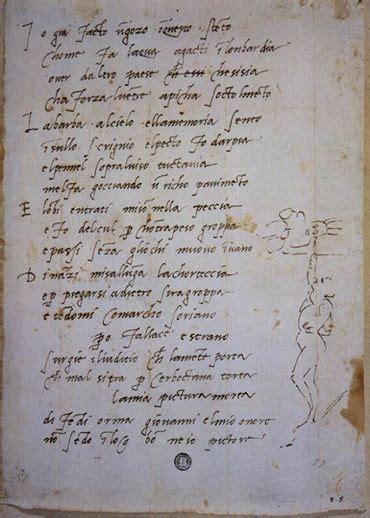 I o gia facto ũgozo ĩquesto stẽto
chome fa laqua agacti ĩlombardia
over daltro paese ch essi chesisia
cha forza lvẽtre apicha socto lmẽto
L a barba alcielo ellamemoria sẽto
ĩsullo scrignio elpecto fo darpia
elpennel sopraluiso tuctavia
melfa gocciando ũ richo pavimẽto
E lõbi entrati miso nella peccia
e fo delcul p chõtrapeso groppa
e passi sẽza gliochi muovo ĩvano
D inãzi misallũga lachorteccia
e p piegarsi adietro siragroppa
e tẽdomi comarcho soriano
po fallace e strano
surgie iliuditio ch lamẽte porta
ch mal si tra p cerboctana torta
lamia pictura morta
difẽdi orma giovanni elmio onore
nõ sẽdo ĩ log bõ ne io pictore